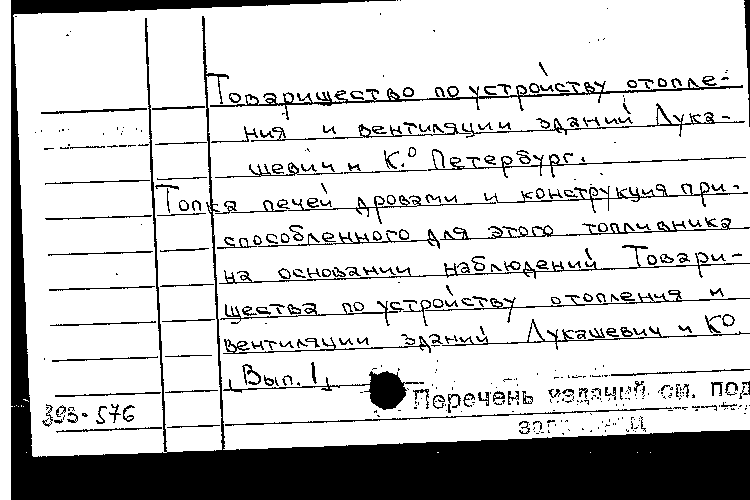 Товарищество по устройству отопле-
ния и вентиляции зданий Лука-
шевич и К.º Петербург.
Топка печей дровами и конструкция при-
способленного для этого топливника
на основании наблюдений Товари-
щества по устройству отопления и
вентиляции зданий Лукашевич и Кº.
[Вып. 1]
Перечень изданий см. под
393-576